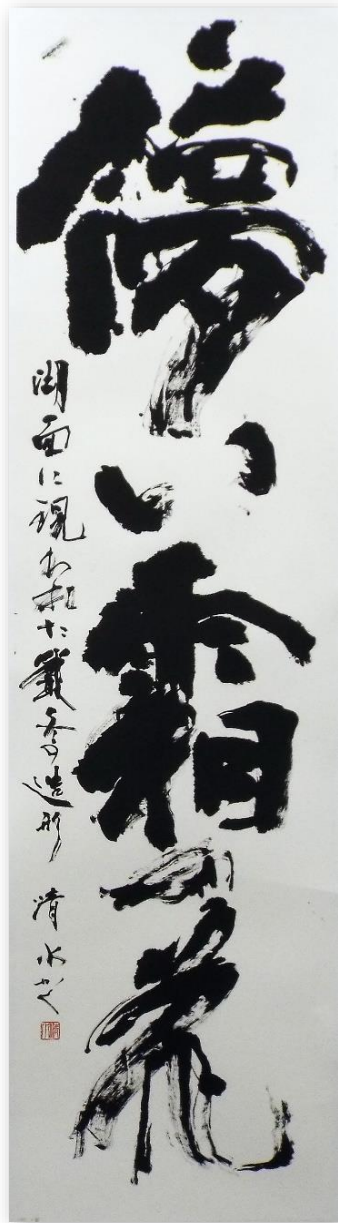 儚い霜の花
湖面に現われた厳冬の造形 清水